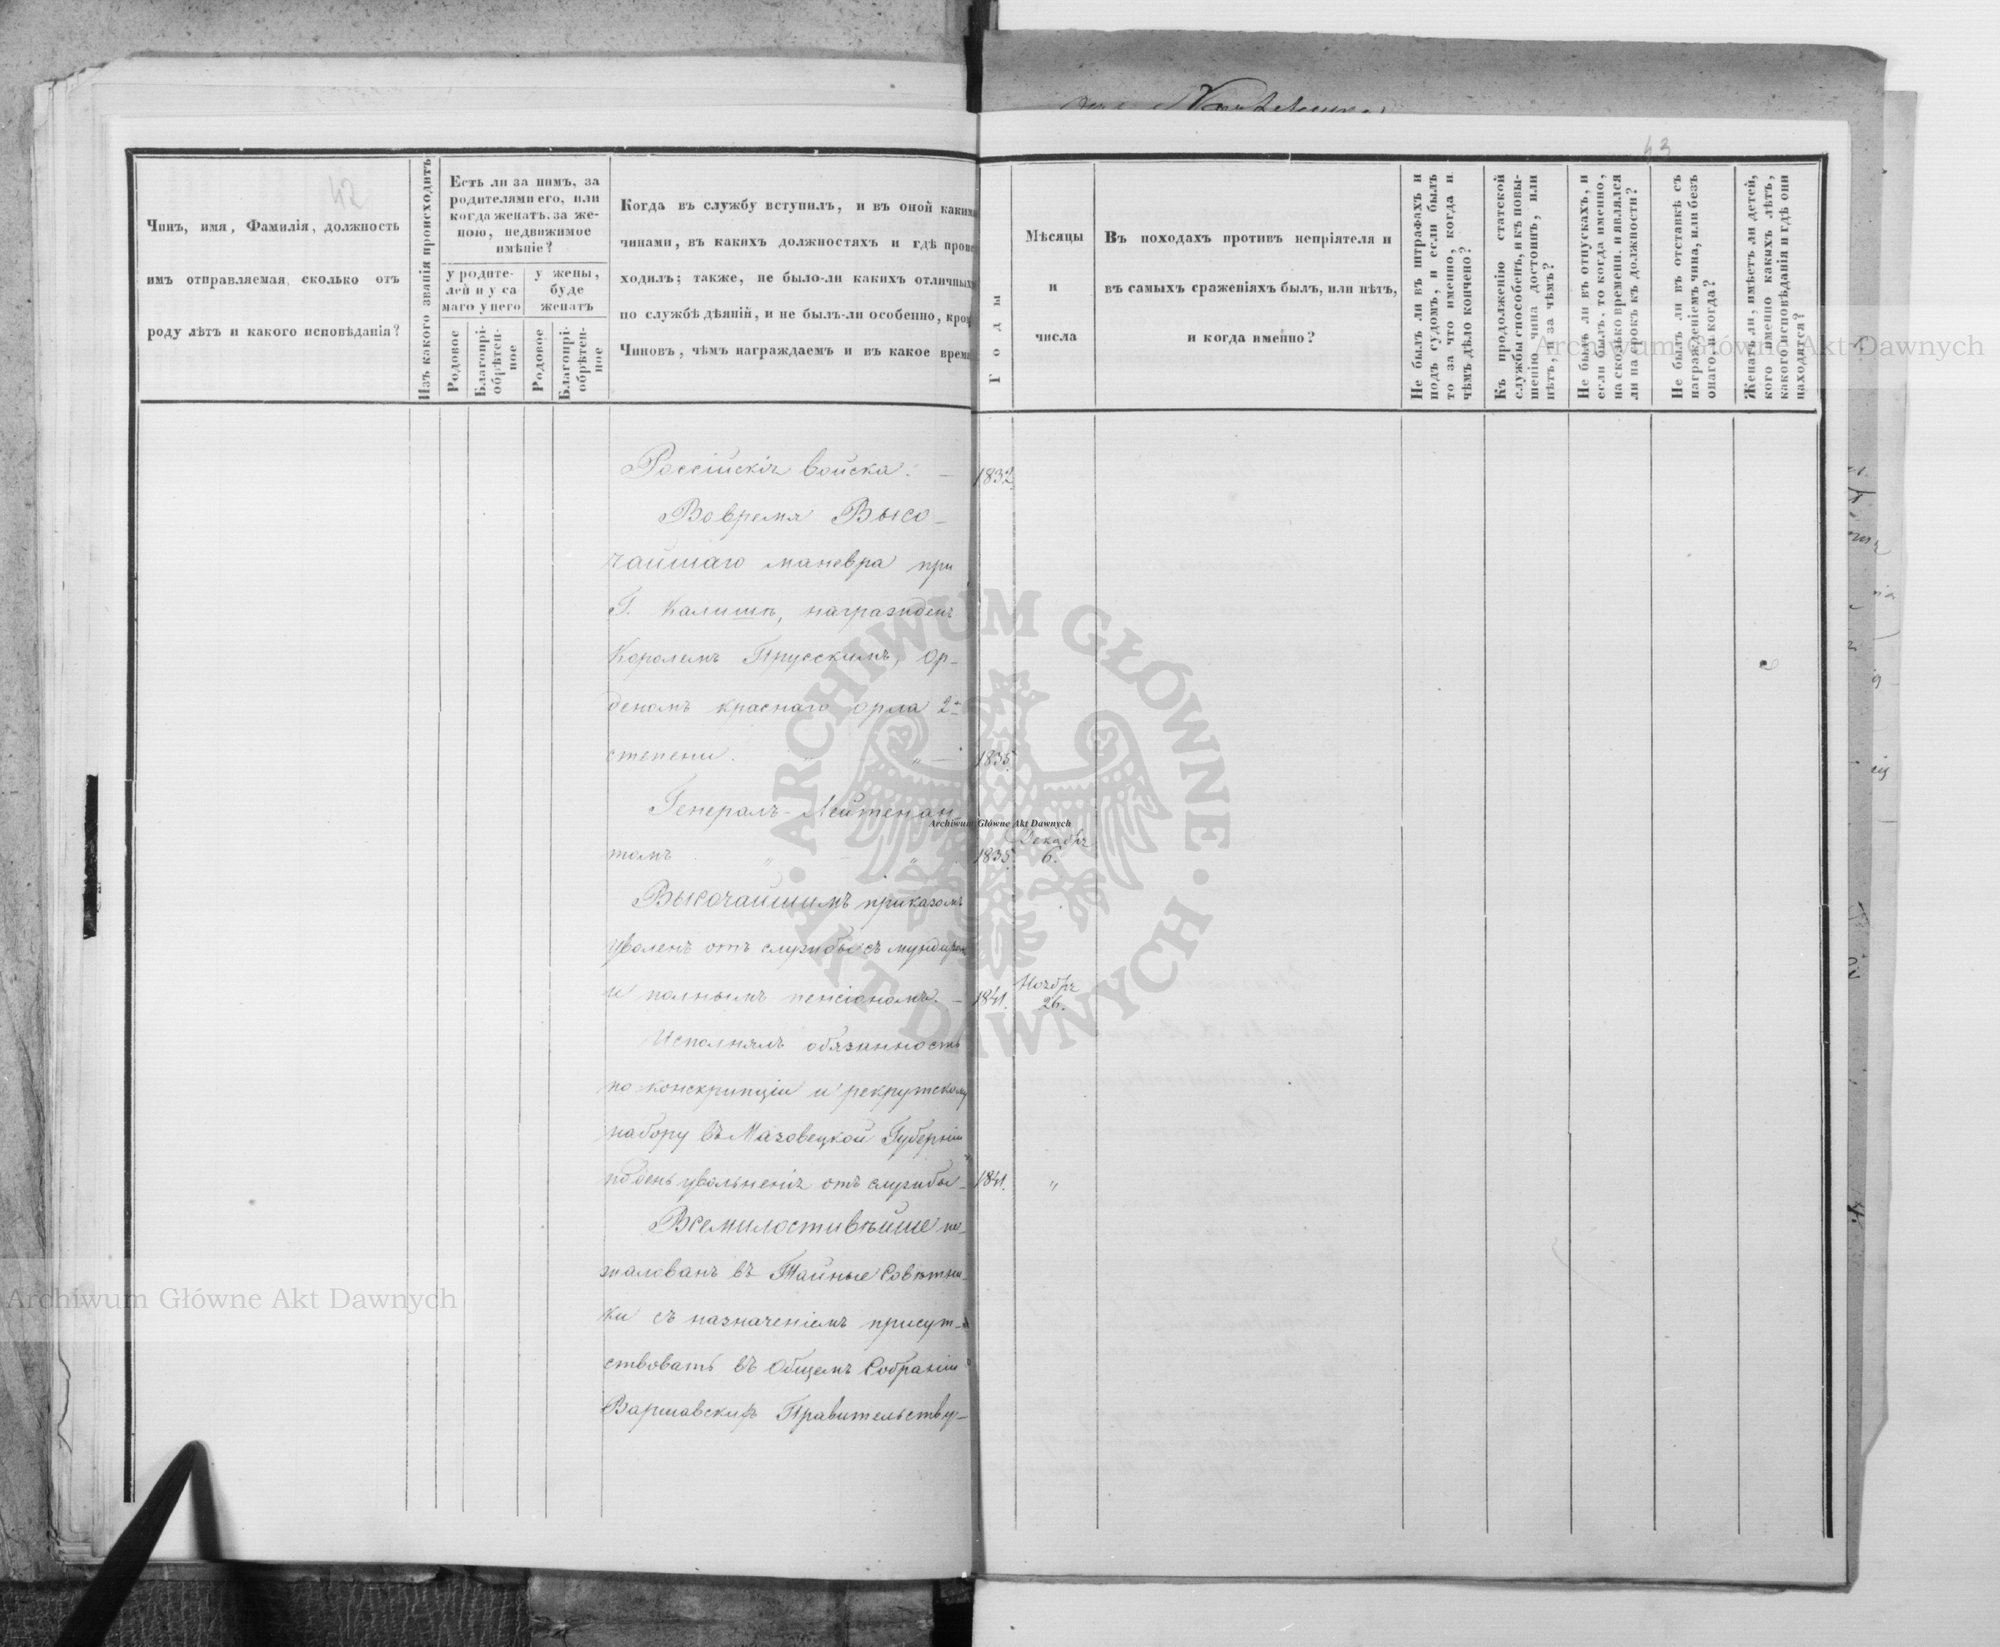 42
43
Чинъ, имя, Фамилія, должность
имъ отправляемая, сколько отъ
роду лѣтъ и какого исповѣданія?
Изъ какого званія происходитъ
Есть ли за нимъ, за
родителями его, или
когда женатъ. за же-
ною, недвижимое
имѣніе?
у родите-
лей и у са
маго у него
у жены,
буде
женатъ
Родовое
Благопрі-
обрѣтен-
ное
Родовое
Благопрі-
обрѣтен-
ное
Когда въ службу вступилъ, и въ оной какими
чинами, въ какихъ должностяхъ и гдѣ проис
ходилъ; также, не было-ли какихъ отличныхъ
по службѣ дѣяній, и не былъ-ли особенно, кромѣ
Чиновъ, чѣмъ награждаемъ и въ какое время
Годы
Мѣсяцы
и
числа
Въ походахъ противъ непріятеля и
въ самыхъ сраженіяхъ былъ, или нѣтъ,
и когда именно?
Не былъ ли въ штрафахъ и
подъ судомъ, и если былъ
то за что именно, когда и
чѣмъ дѣло кончено?
Къ продолженію статской
службы способенъ, и къ повы-
шенію чина достоинъ, или
нѣтъ, и за чѣмъ?
Не былъ ли въ отпускахъ, и
если былъ. то когда именно,
на сколько времени. и являлся
ли на срокъ къ должности?
Не былъ ли въ отставкѣ съ
награжденіемъ чина, или безъ
онаго и когда?
Женатъ ли, имѣетъ ли детей,
кого именно какихъ лѣтъ,
какого исповѣданія и гдѣ они
находятся?
Россійскія войска. — 1832.
Вовремя Высо-
чайшаго маневра при
Г. Калишѣ, награжденъ
Королемъ Прусскимъ, Ор-
деномъ краснаго орла 2й
степени. „ „ — 1835.
Генералъ-Лейтенан
томъ „ „ 1835. Декабрь 6.
Высочайшимъ приказомъ
уволенъ отъ службы съ мундиром
и полнымъ пенсіономъ. — 1841. Ноябрь 26.
Исполнялъ обязанность
по конскрипціи и рекрутскому
набору въ Мазовецкой Губерніи
по день увольненія отъ службы — 1841. „
Всемилостивѣйше по-
жалованъ въ Тайные Совѣтни-
ки съ назначеніемъ присут-
ствовать въ Общемъ Собраніи
Варшавскихъ Правительству-
Archiwum Główne Akt Dawnych
Archiwum Główne Akt Dawnych
Archiwum Główne Akt Dawnych
ARCHIWUM GŁÓWNE AKT DAWNYCH